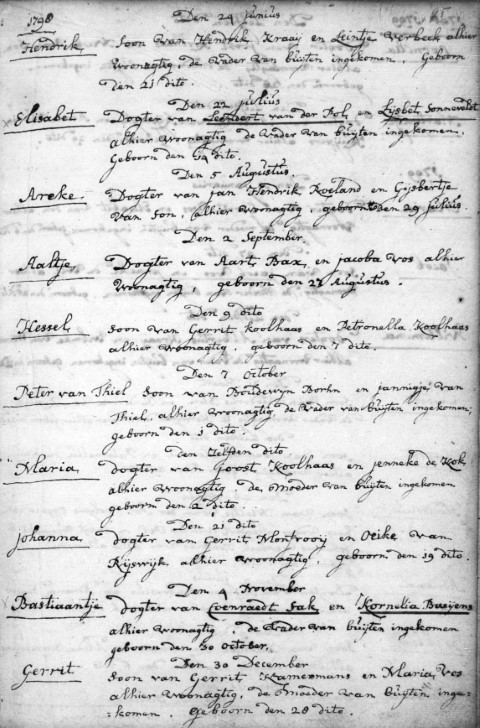 1798
Den 24 Junius
Hendrik, soon van Hendrik Kraaij en Leintje Verbeek alhier
woonagtig, de Vader van buijten ingekomen, Geboorn
den 21 dito.
Den 22 Julius
Elisabet Dogter van Leendert van der Pol, en Lijsbet Sonneveldt
alhier woonagtig de Vader van buijten ingekomen.
Geboorn den dito.
Den 5 Augustus.
Areke. Dogter van Jan Hendrik Roeland en Gijsbertje
van Son, alhier woonagtig, geboorn den 29 Julius.
Den 2 September.
Aaltje, Dogter van Aart Bax, en Jacoba Vos alhier
woonagtig, geboorn den 27 Augustus.
Den 9 dito
Hessel, soon van Gerrit Koolhaas en Petronella Koolhaas
alhier woonagtig, geboorn den 7 dito.
Den 7 October
Peter van Thiel soon van Boudewijn Borhn en Jannigje van
Thiel, alhier woonagtig de Vader van buijten ingekomen,
geboorn den 3 dito.
den Zelfden dito
Maria, dogter van Joost Koolhaas en Jenneke de Kok
alhier woonagtig, de Moeder van buijten ingekomen
geboorn den 2 dito.
Den 21 dito
Johanna, dogter van Gerrit Montrooij en Oeike van
Rijswijk alhier woonagtig, geboorn den 19 dito.
Den 4 November
Bastiaantje dogter van Coenraedt Jak, en Kornelia Baaijens
alhier woonagtig, de Vader van buijten ingekomen
geboorn den 30 October,
Den 30 December
Gerrit soon van Gerrit Kamermans en Maria Vos
alhier woonagtig, de Moeder van buijten inge-
komen, Geboorn den 28 dito.